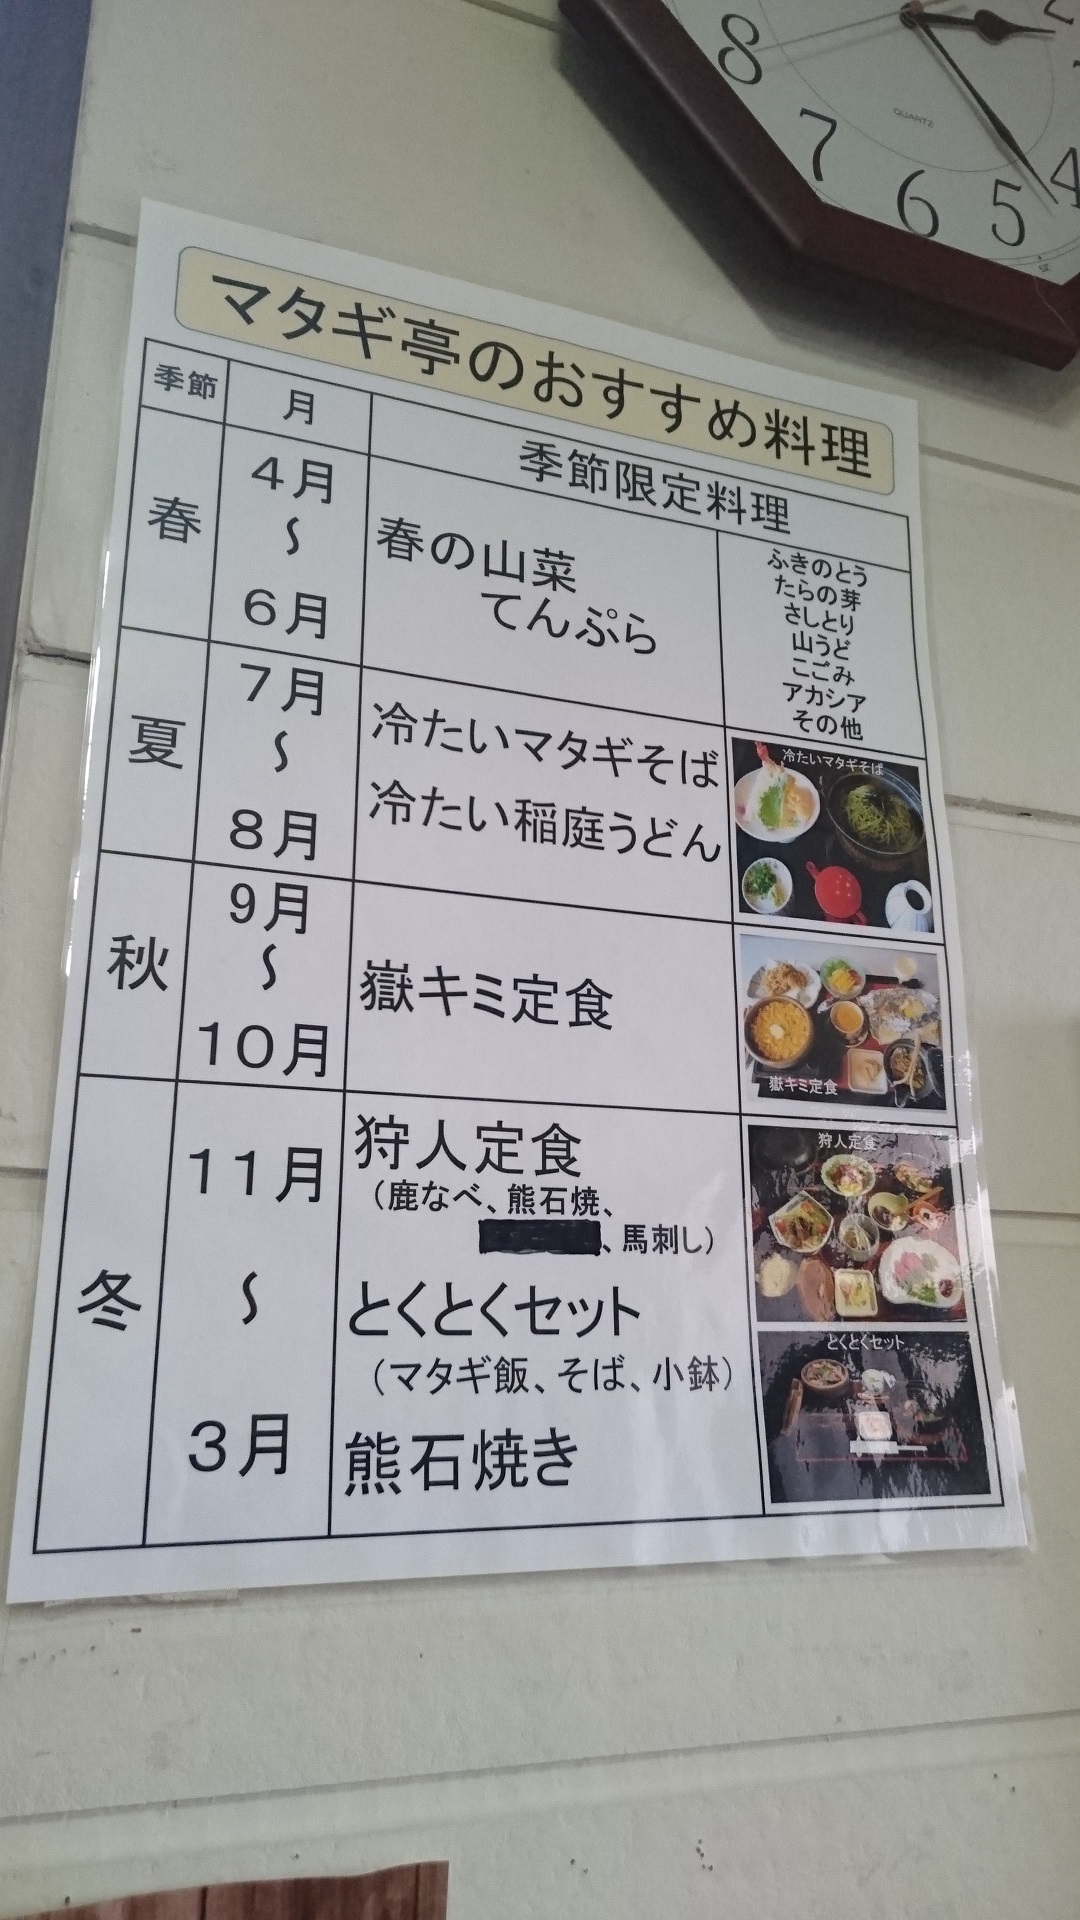 8
7
6
5
4
QUARTZ
マタギ亭のおすすめ料理
季節 月 季節限定料理
春 4月 〜 6月
春の山菜
てんぷら
ふきのとう
たらの芽
さしとり
山うど
こごみ
アカシア
その他
夏 7月 〜 8月
冷たいマタギそば
冷たい稲庭うどん
冷たいマタギそば
秋 9月 〜 10月
嶽キミ定食
嶽キミ定食
冬 11月 〜 3月
狩人定食
（鹿なべ、熊石焼、
、馬刺し）
とくとくセット
（マタギ飯、そば、小鉢）
熊石焼き
狩人定食
とくとくセット